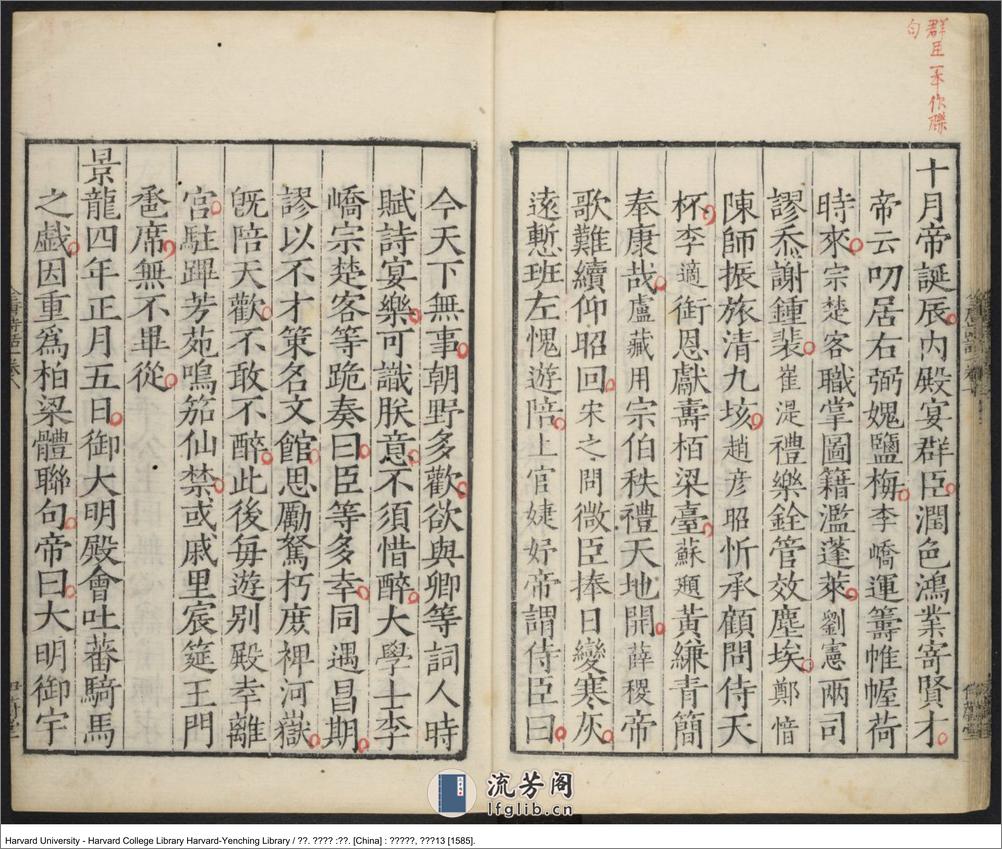 群臣一本作聯
句
十月帝誕辰內殿宴群臣潤色鴻業寄賢才
帝云叨居右弼媿鹽梅李嶠運籌帷幄荷
時來宗楚客職掌圖籍濫蓬萊劉憲兩司
謬忝謝鍾裴崔湜禮樂銓管效塵埃鄭愔
陳師振旅清九垓趙彥昭忻承顧問侍天
杯李適銜恩獻壽栢梁臺蘇頲黃縑青簡
奉康哉盧藏用宗伯秩禮天地開薛稷帝
歌難續仰昭回宋之問微臣捧日變寒灰
遠慙班左愧遊陪上官婕妤帝謂侍臣曰
今天下無事朝野多歡欲與卿等詞人時
賦詩宴樂可識朕意不須惜醉大學士李
嶠宗楚客等跪奏曰臣等多幸同遇昌期
謬以不才策名文館思勵駑朽庶裨河嶽
旣陪天歡不敢不醉此後每遊別殿幸離
宮駐蹕芳苑鳴笳仙禁或戚里宸筵王門
卺席無不畢從
景龍四年正月五日御大明殿會吐蕃騎馬
之戲因重爲柏梁體聯句帝曰大明御宇
流芳阁
lfglib.cn
Harvard University - Harvard College Library Harvard-Yenching Library / ??. ???? :??. [China] : ?????, ???13 [1585].